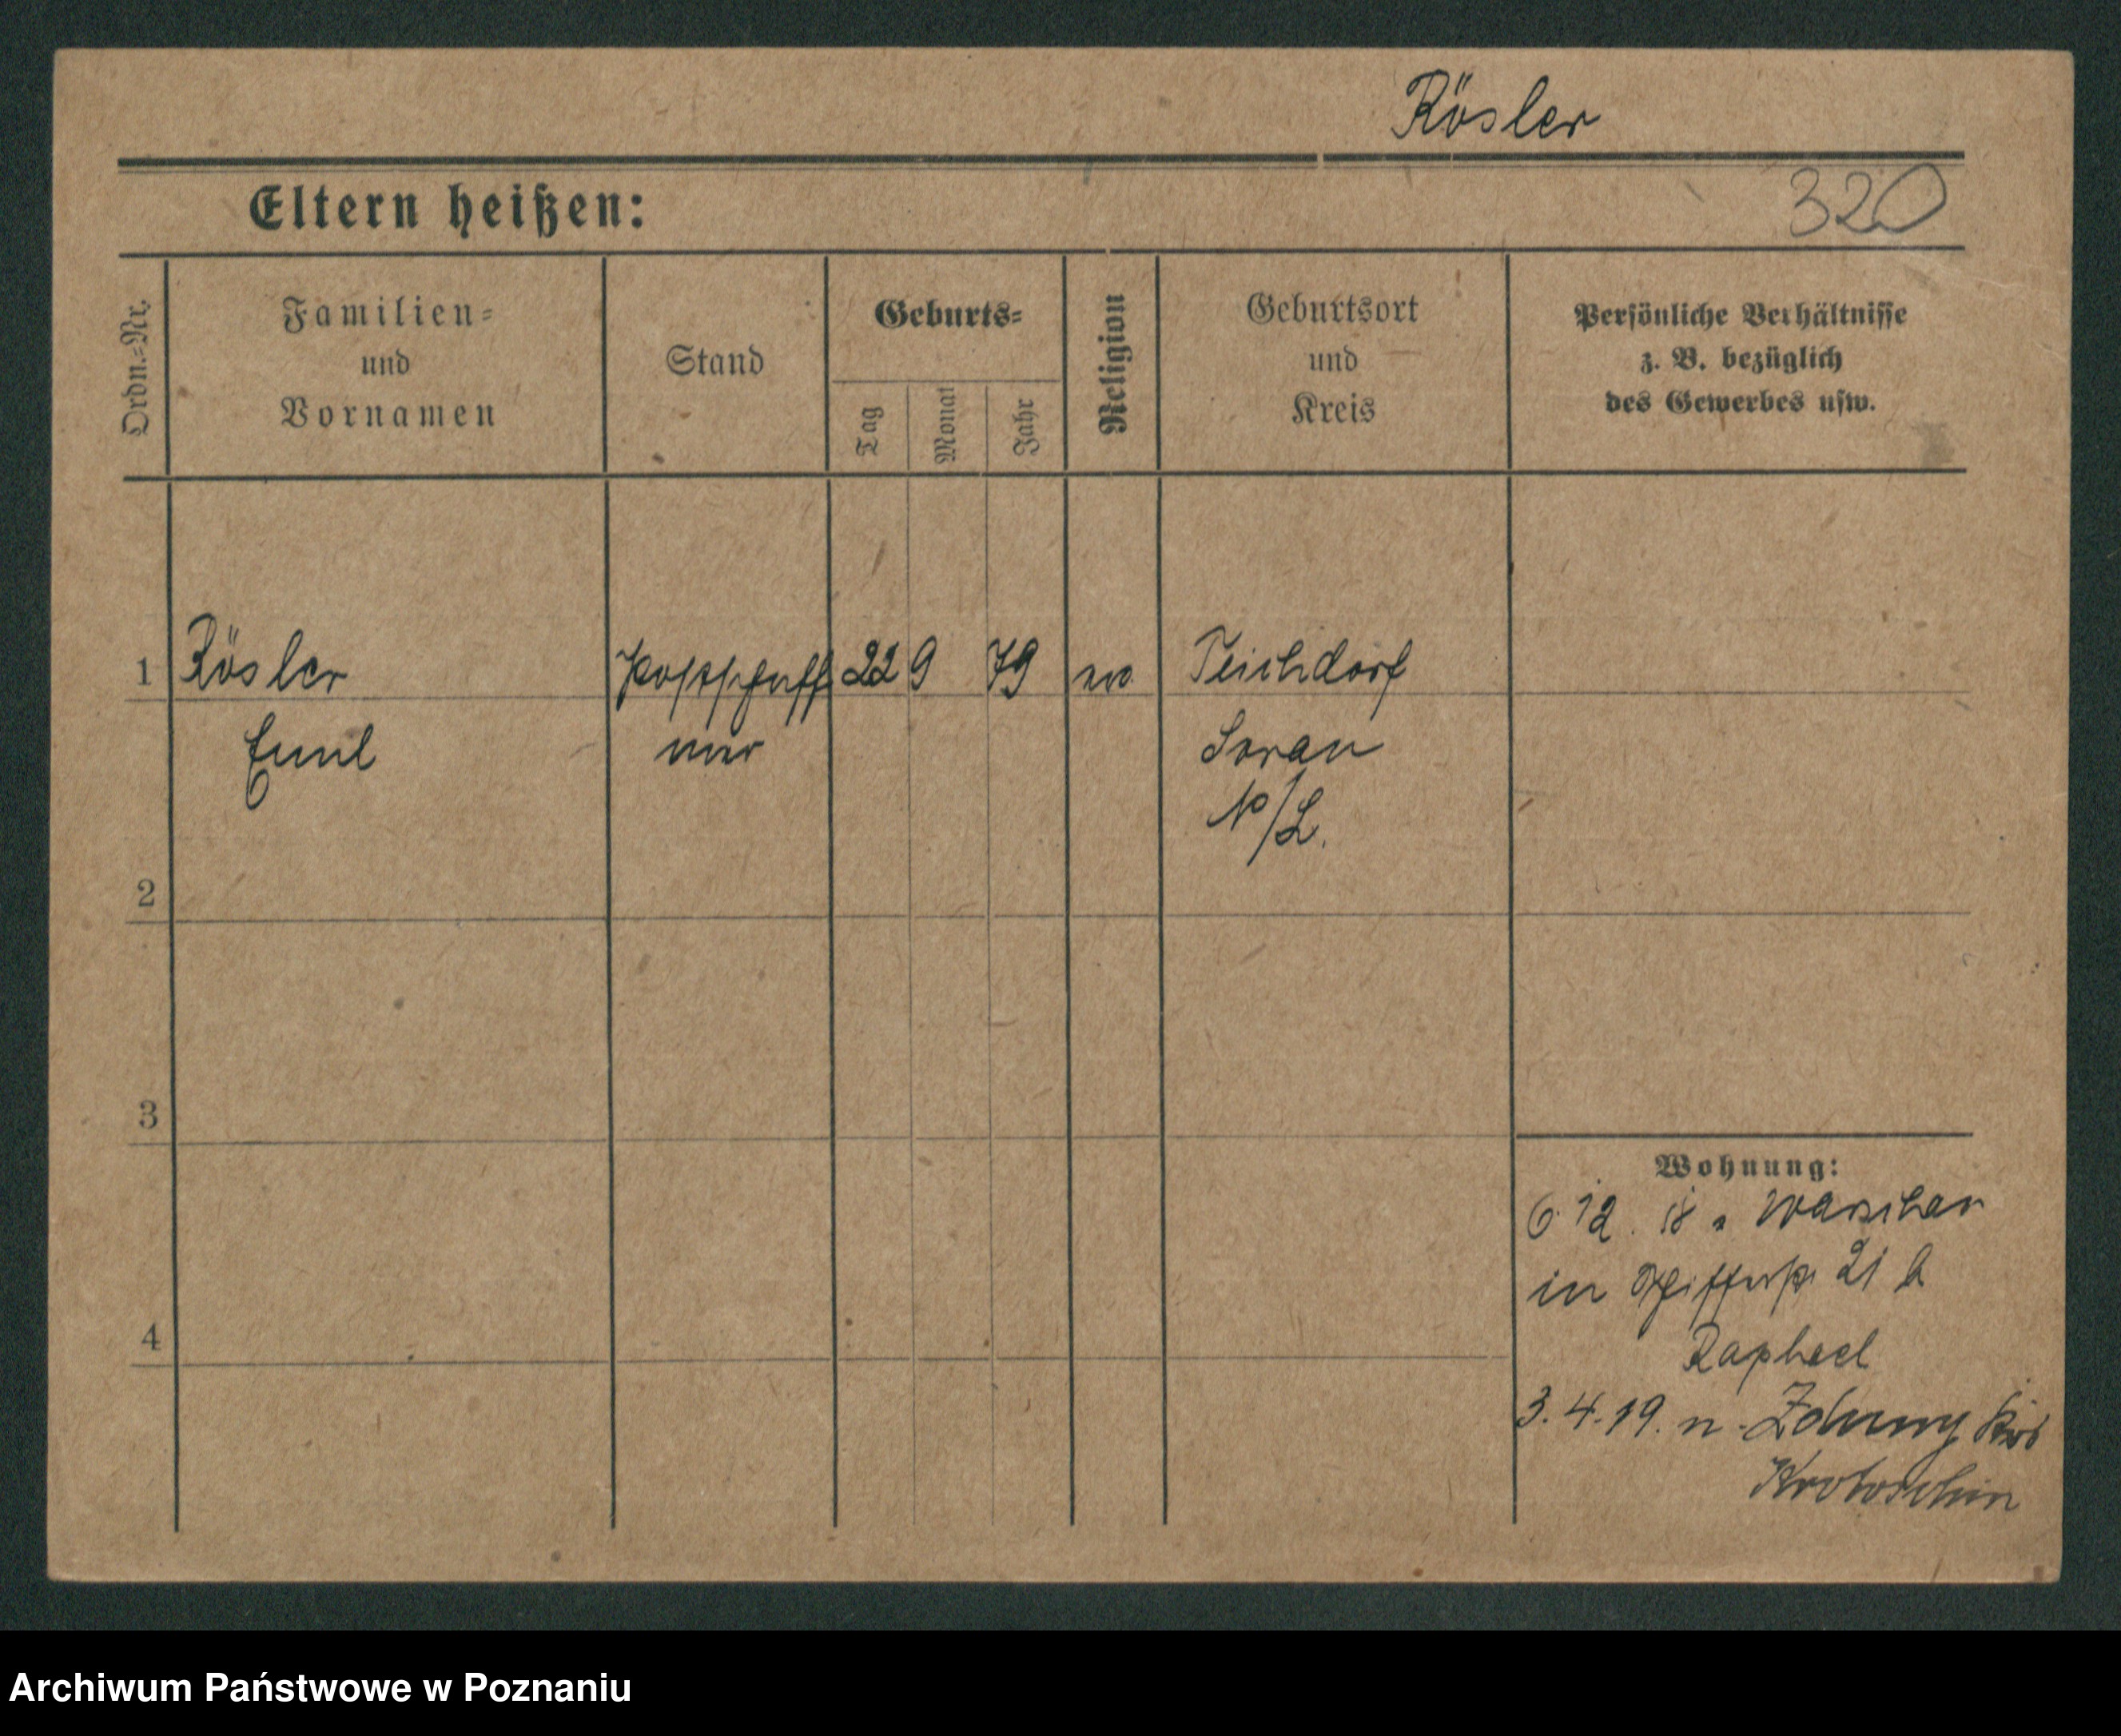 Rösler
Eltern heißen:
320
Ordn.-Nr.
Familien-
und
Vornamen
Stand
Geburts-
Tag
Monat
Jahr
Religion
Geburtsort
und
Kreis
Persönliche Verhältnisse
z. B. bezüglich
des Gewerbes usw.
1
Rösler
22
9
79
ev.
Teichdorf
Emil
ner
Sorau
N/L.
2
3
4
Wohnung:
6. 12. 18 a Warschau
in 21 b
Raphael
3. 4. 19. n. Zduny Krs
Krotoschin
Archiwum Państwowe w Poznaniu